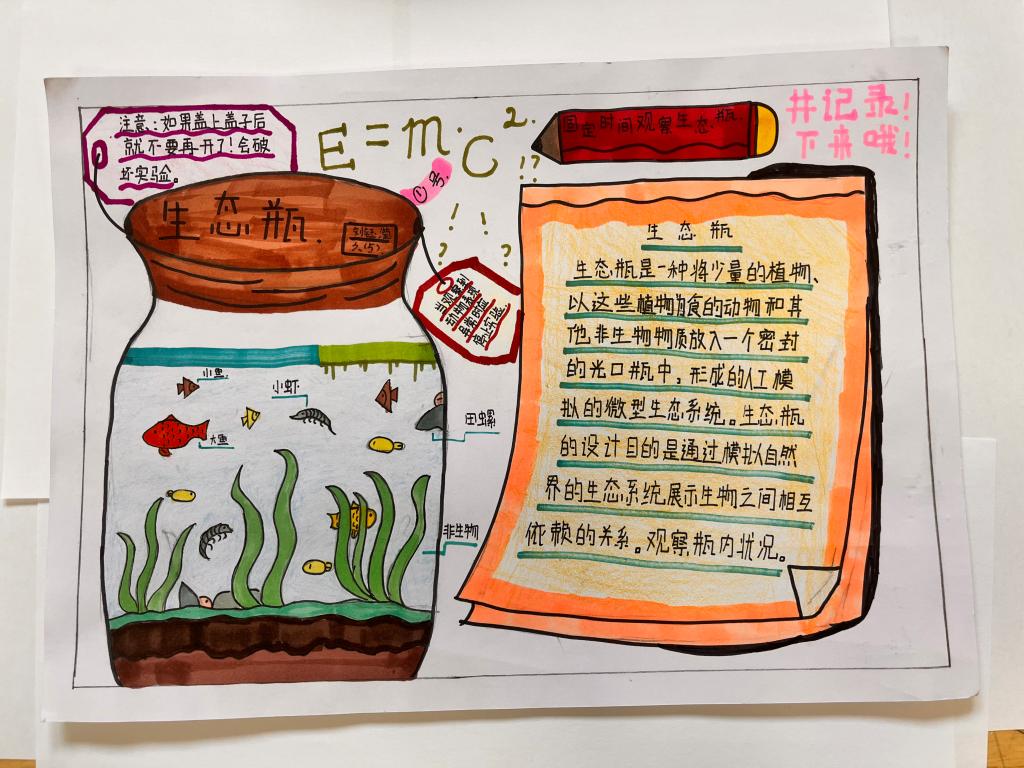 注意:如果盖上盖子后
就不要再开了!会破
坏实验。
E=m·c².
固定时间观察生态瓶
!?
井记录!
下来哦!
①号
生态瓶.
!!
??
当观察到
动物表现
异常时应
停止实验
生态瓶
生态瓶是一种将少量的植物、
以这些植物为食的动物和其
他非生物物质放入一个密封
的光口瓶中,形成的人工模
拟的微型生态系统。生态瓶
的设计目的是通过模拟自然
界的生态系统,展示生物之间相互
依赖的关系。观察瓶内状况。
小鱼
小虾
大鱼
田螺
非生物